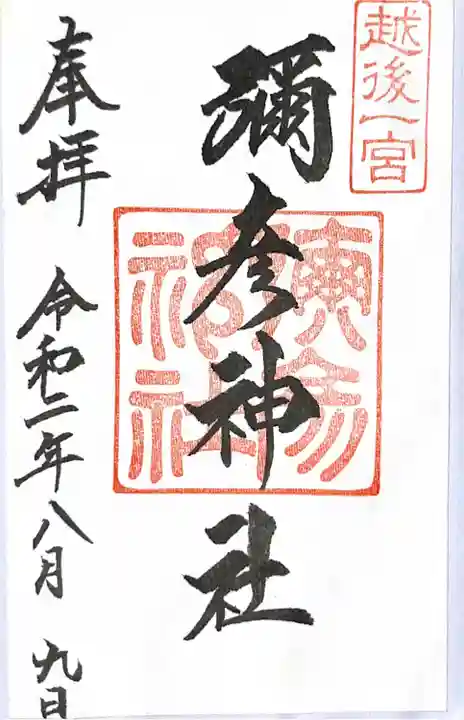 越後一宮
彌彦神社
奉拝
令和二年八月九日